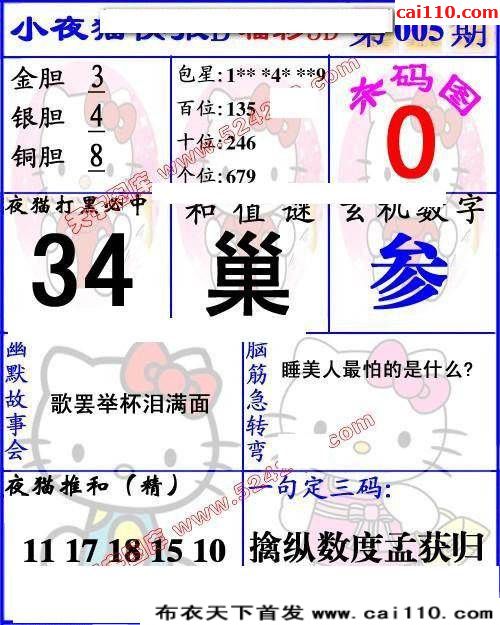 cai110.com
小夜猫
第005期
金胆 3
银胆 4
铜胆 8
包星:1** *4* **9
百位:135
十位:246
个位:679
杀码图
0
夜猫打黑必中
34
和值谜
巢
玄机数字
参
幽默故事会
歌罢举杯泪满面
脑筋急转弯
睡美人最怕的是什么?
夜猫推和（精）
11 17 18 15 10
一句定三码:
擒纵数度孟获归
布衣天下首发 www.cai110.com